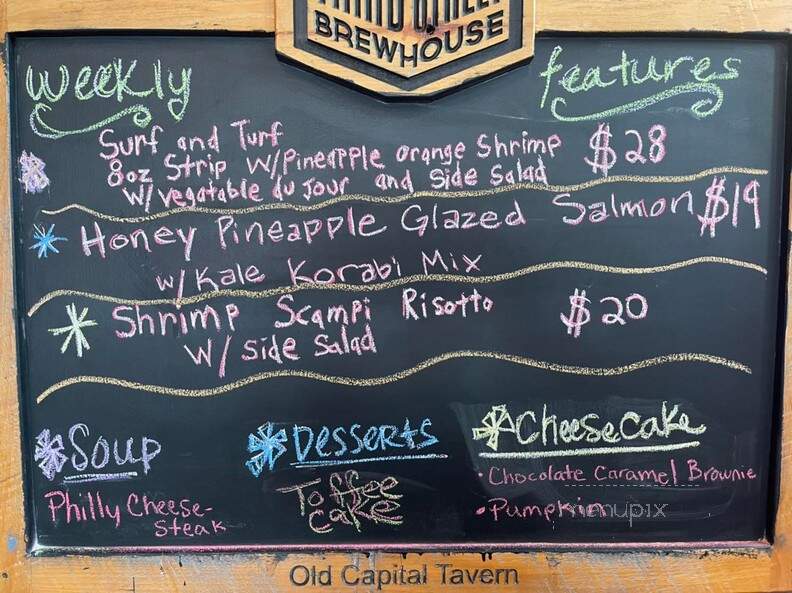 BREWHOUSE
Weekly features
Surf and Turf
8oz Strip w/Pineapple orange Shrimp $28
w/vegatable du Jour and Side Salad
Honey Pineapple Glazed Salmon $19
w/Kale Korabi Mix
Shrimp Scampi Risotto $20
w/ side Salad
Soup
Philly Cheese-
steak
Desserts
Toffee
cake
Cheesecake
• Chocolate Caramel Brownie
• Pumpkin
menupix
Old Capital Tavern